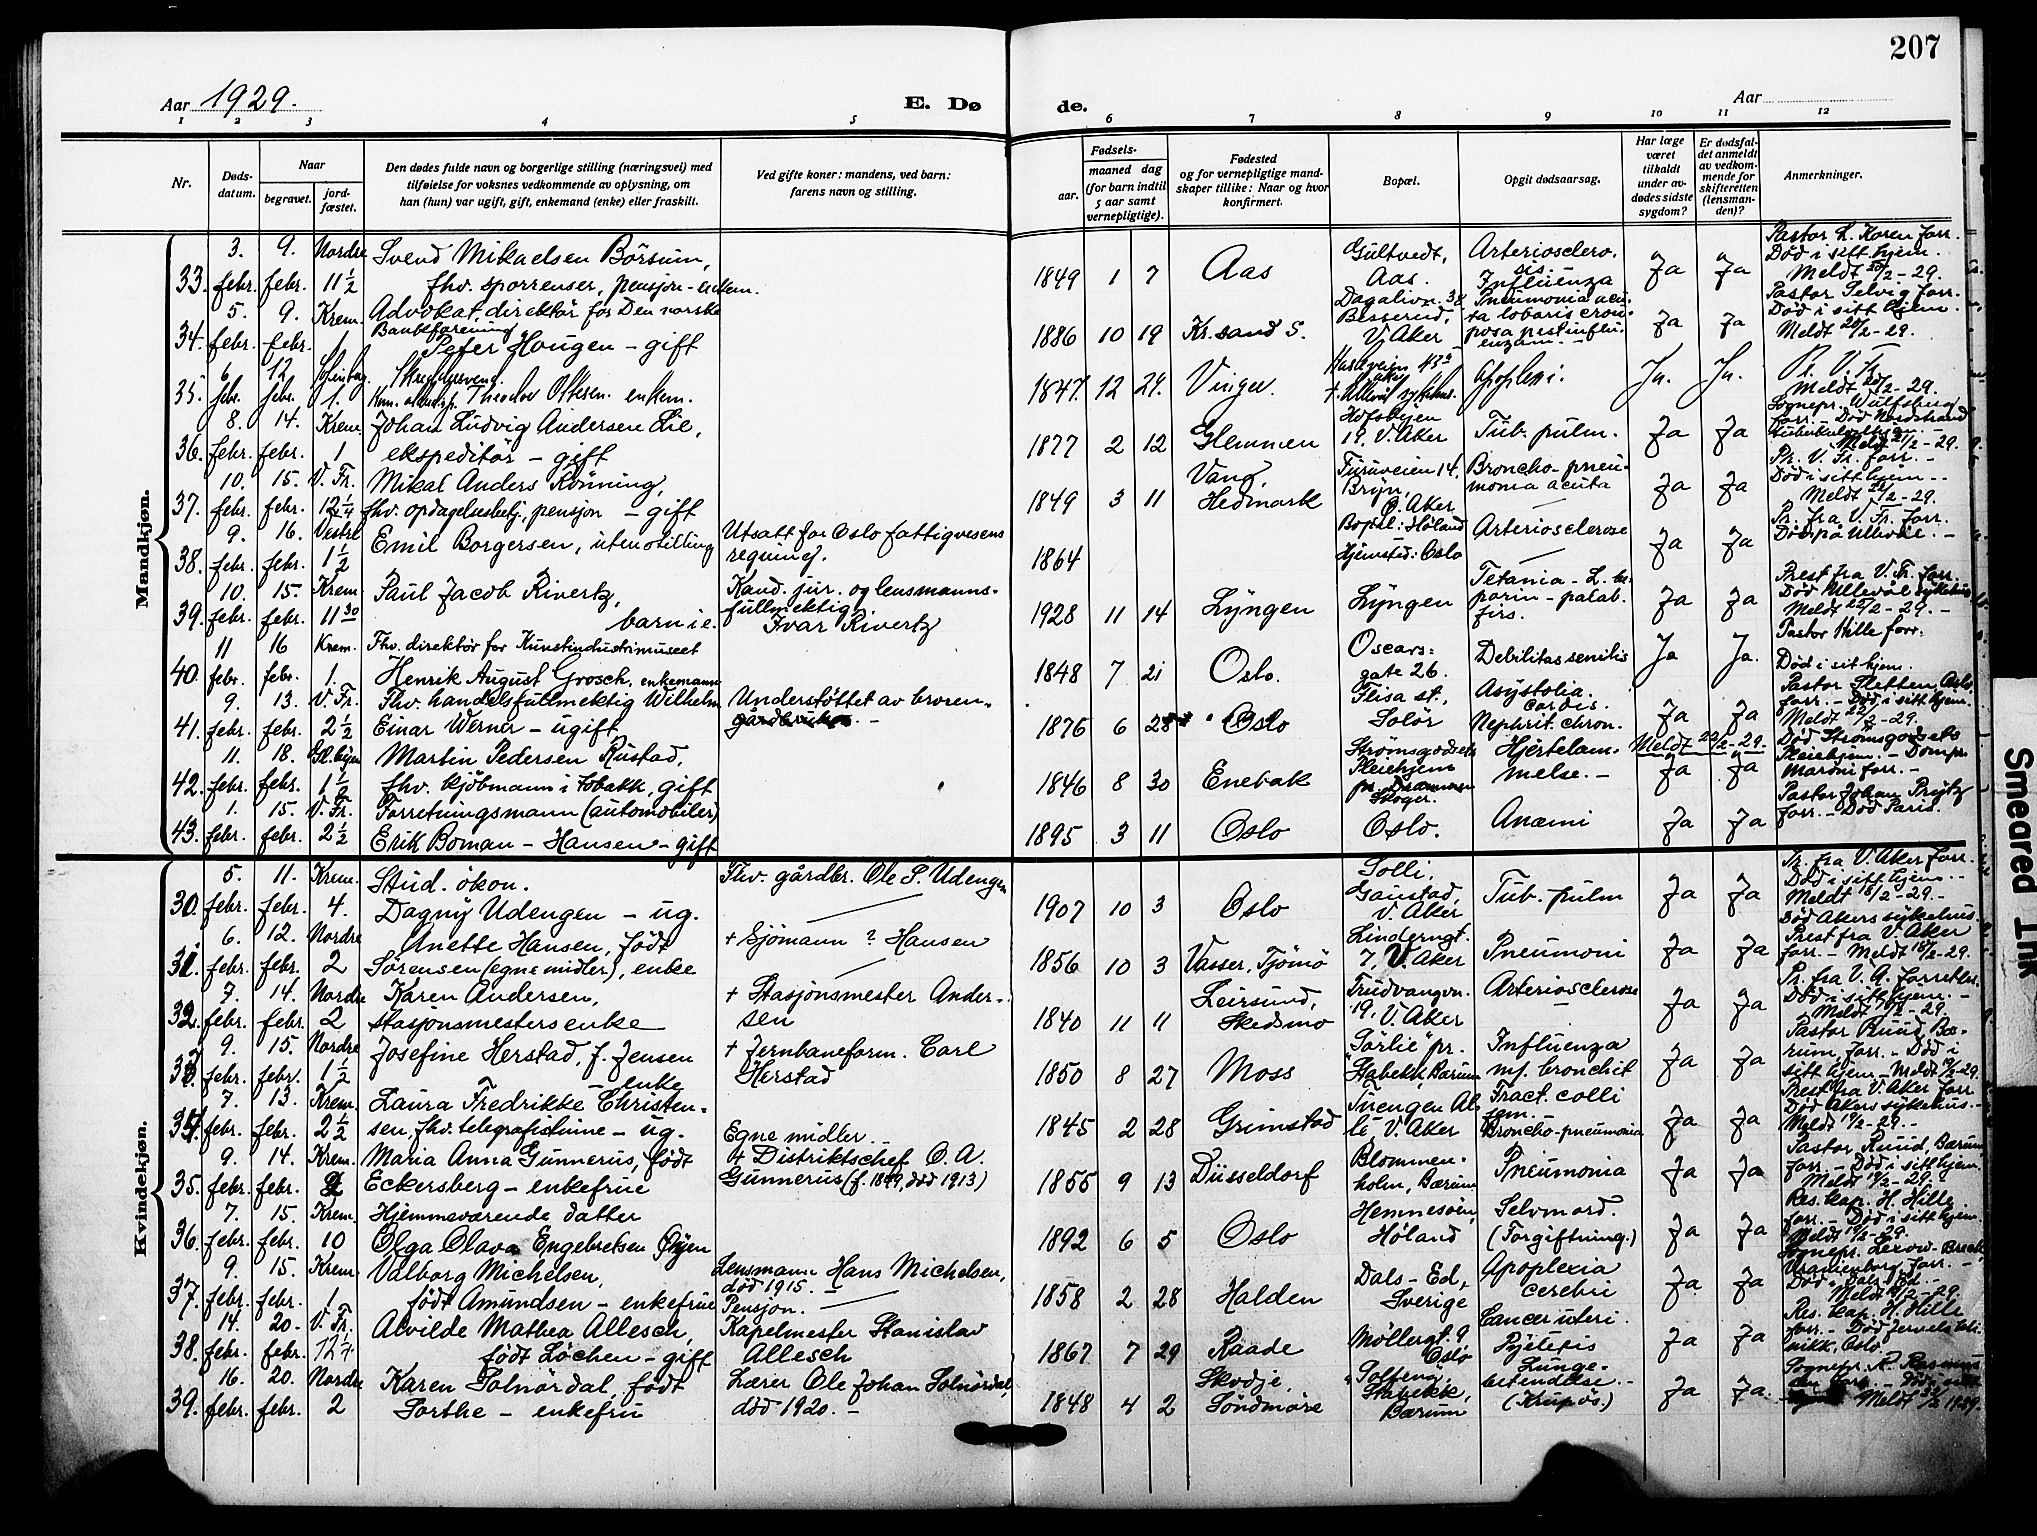 207
Aar 1929.
E. Dø
de.
Aar
1 2 3 4 5 6 7 8 9 10 11 12
Nr.
Døds-
datum.
Naar
begravet.
jord-
fæstet.
Den dødes fulde navn og borgerlige stilling (næringsvei) med
tilføielse for voksnes vedkommende av oplysning, om
han (hun) var ugift, gift, enkemand (enke) eller fraskilt.
Ved gifte koner: mandens, ved barn:
farens navn og stilling.
Fødsels-
aar.
maaned dag
(for barn indtil
5 aar samt
vernepligtige).
Fødested
og for vernepligtige mand-
skaper tillike: Naar og hvor
konfirmert.
Bopæl.
Opgit dødsaarsag.
Har læge
været
tilkaldt
under av-
dødes sidste
sygdom?
Er dødsfal-
det anmeldt
av vedkom-
mende for
skifteretten
(lensman-
den)?
Anmerkninger.
Mandkjøn.
33. 3. febr. 9. febr. Nordre 11 1/2
Svend Mikaelsen Börsum,
fhv. sporrenser, pensjon - enkem.
1849 1 7 Aas
Gultvedt,
Aas.
Arteriosclero.
sis.
Influenza
Ja Ja
Pastor L. Koren forr.
Död i sitt hjem.
Meldt 20/2-29.
34. 5. febr. 9. febr. Krem. 1
Advokat, direktör for Den norske
Bankforening
Peter Haugen - gift
1886 10 19 Kr. sand S.
Dagalivn. 38
Besserud,
V. Aker
Pneumonia acu-
ta lobaris crou-
posa post influ-
enzam. -
Ja Ja
Pastor Selvig forr.
Död i sitt hjem.
Meldt 20/2-29.
35. 6. febr. 12. febr. 1.
Theodor Olsen. enkem.
1847 12 24. Vinger.
Apoplexi.
Ja. Ja.
Pr. V. Fr.
Meldt 20/2-29.
36. 8. febr. 14. febr. Krem. 1
Johan Ludvig Andersen Lie,
ekspeditör - gift
1877 2 12 Glemmen
19. V. Aker
Tub. pulm.
Ja Ja
Sognepr. Wulfsberg
forr. - Död Nordstrand
Meldt 21/2-29.
37. 10. febr. 15. febr. V. Fr. 12 1/4
Mikal Anders Rönning,
fhv. opdagelsesbetj., pensjon - gift
1849 3 11
Vang,
Hedmark
Furuveien 14.
Bryn,
Ö. Aker
Broncho-pneu-
monia acuta
Ja Ja
Pr. V. Fr. forr. -
Död i sitt hjem. -
Meldt 22/2-29.
38. 9. febr. 16. febr. Vestre 1 1/2
Emil Borgersen, uten stilling
Utsatt for Oslo fattigvesens
regning.
1864
Bopæl: Höland
Hjemsted: Oslo
Arteriosclerose
Ja Ja
Pr. fra V. Fr. forr.
Död på Ullevål. -
39. 10. febr. 15. febr. Krem 11 30
Paul Jacob Rivertz,
barn i e.
Kand. jur. og lensmanns-
fullmektig
Ivar Rivertz
1928 11 14 Lyngen
Lyngen
Ja Ja
Prest fra V. Fr. forr.
Död Ullevål sykehus
Meldt 22/2-29. -
40. 11 febr. 16 febr. Krem. 1.
Fhv. direktör for Kunstindustrimuseet
Henrik August Grosch, enkemann
1848 7 21 Oslo.
Oscars=
gate 26.
Debilitas senilis
Ja Ja.
Pastor Hille forr.
Död i sit hjem.
41. 9. febr. 13. febr. V. Fr. 2 1/2
Fhv. handelsfullmektig Wilhelm
Einar Werner - ugift
Understöttet av broren-
gårdbruker. -
1876 6 28 Oslo
Flisa st.
Solör
Asystolia.
cordis.
Nephrit. chron.
Ja Ja
Pastor Sletten Oslo
forr. - Död i sitt hjem.
Meldt 22/2-29.
42. 11. febr. 18. febr. 1 1/2
Martin Pedersen Rustad,
fhv. kjöbmann i tobakk, gift
1846 8 30 Enebak
Strömsgodsets
Pleiehjem
pr. Drammen
Skoger.
Hjertelam-
melse. -
Meldt 22/2-29.
Ja Ja
Död Strömsgodsets
Pleiehjem. - Dompr.
Maroni forr. -
43. 1. febr. 15. febr. V. Fr. 2 1/2
Forretningsmann (automobiler)
Erik Boman - Hansen - gift
1895 3 11 Oslo
Oslo.
Anæmi
Ja Ja
Pastor Johan Prytz
forr. - Död Paris.
Kvindekjøn.
30. 5. febr. 11. febr. Krem. 4.
Stud. ökon.
Dagny Udengen - ug.
Fhv. gårdbr. Ole P. Udengen
1907 10 3 Oslo
Solli,
Gaustad,
V. Aker
Tub. pulm
Ja Ja
Pr. fra V. Aker forr.
Död i sitt hjem. -
Meldt 18/2-29. -
31. 6. febr. 12. febr. Nordre 2
Anette Hansen, född
Sørensen (egne midler), enke
+ Sjömann ? Hansen
1856 10 3 Vasser, Tjömö
Linderngt.
7, V. Aker
Pneumoni
Ja Ja
Död Akers sykehus.
Prest fra V. Aker
forr. - Meldt 18/2-29.
32. 7. febr. 14. febr. Nordre 2
Karen Andersen,
stasjonsmestersenke
+ Stasjonsmester Ander-
sen
1840 11 11
Leirsund,
Skedsmo
Trudvangvn.
19, V. Aker
Arteriosclerose
Ja Ja
Pr. fra V. A. forrettet.
Död i sitt hjem. -
Meldt 19/2-29.
33. 9. febr. 15. febr. Nordre 1 1/2
Josefine Herstad, f. Jensen
enke
+ Jernbaneform. Carl
Herstad
1850 8 27 Moss
"Sörlie" pr.
Stabekk, Bærum
Influenza
m/ bronchit
Ja Ja
Pastor Ruud, Bæ-
rum, forr. - Död i
sitt hjem - Meldt 19/2-29.
34. 7. febr. 13. febr. Krem. 2 1/2
Laura Fredrikke Christen-
sen, fhv. telegrafistinne - ug.
Egne midler. -
1845 2 28 Grimstad
Tuengen Al-
lé, V. Aker
Fract. colli
fem.
Broncho-pneumonia
Ja Ja
Prest fra V. Aker forr.
Död Akers sykehus. -
Meldt 19/2-29. -
35. 9. febr. 14. febr. Krem. 2
Maria Anna Gunnerus, född
Eckersberg - enkefrue
+ Distriktschef O. A.
Gunnerus (f. 1849, död 1913)
1855 9 13 Düsseldorf
Blommen-
holm, Bærum
Pneumonia
Ja Ja
Pastor Ruud, Bærum
forr. - Död i sitt hjem.
Meldt 19/2-29.
36. 7. febr. 15. febr. Krem. 10
Hjemmeværende datter
Olga Olava Engebretsen Öyen
1892 6 5 Oslo
Hemnesöen,
Höland
Selvmord.
(Forgiftning.)
Ja Ja
Res. kap. H. Hille
forr. - Död i sitt hjem.
Meldt 19/2-29.
37. 9. febr. 15. febr. Krem. 1
Valborg Michelsen,
född Amundsen - enkefrue
Lensmann Hans Michelsen,
död 1915. -
Pensjon.
1858 2 28 Halden
Dals-Ed,
Sverige
Apoplexia
cerebri
Ja Ja
Uranienborg, forr. -
Död i Dals-Ed. -
Meldt 19/2-29.
38. 14. febr. 20. febr. V. Fr. 12 1/4
Alvilde Mathea Allesch,
född Löchen - gift
Kapelmester Stanislav
Allesch
1867 7 29 Raade
Möllergt. 9
Oslo
Cancer uteri.
Pyelitis
Ja Ja
Res. kap. H. Hille
nikk, Oslo.
39. 16. febr. 20. febr. Nordre 2
Karen Solnördal, född
Sorthe - enkefru
Lærer Ole Johan Solnördal,
död 1920. -
1848 4 2
Skodje,
Söndmöre
Stabekk,
Bærum
Lunge-
betendelse. -
(Krupös.)
Ja Ja
Meldt 1929.
Smeared Ink